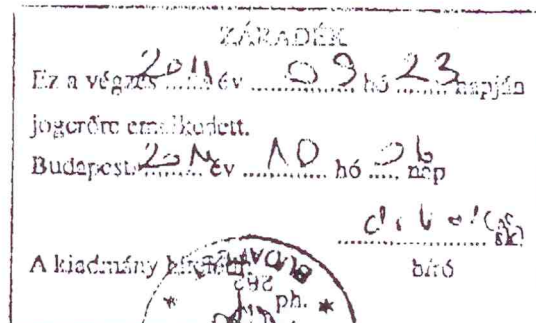 ZÁRADÉK
Ez a végzés 2011 év 09 hó 23 napján
jogerőre emelkedett.
Budapest, év 10 hó 06 nap
sk.
A kiadmány hiteléül:
bíró
BUDAPEST
ph.